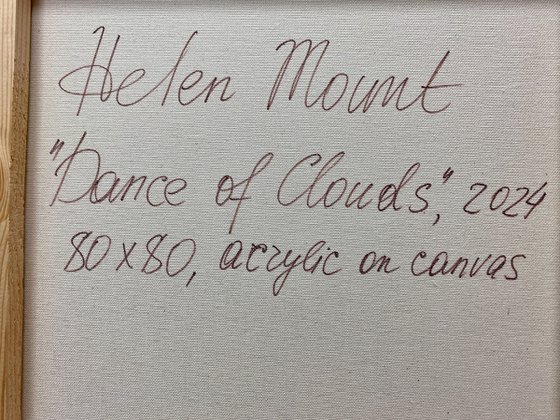 Helen Mount
"Dance of Clouds", 2024
80x80, acrylic on canvas